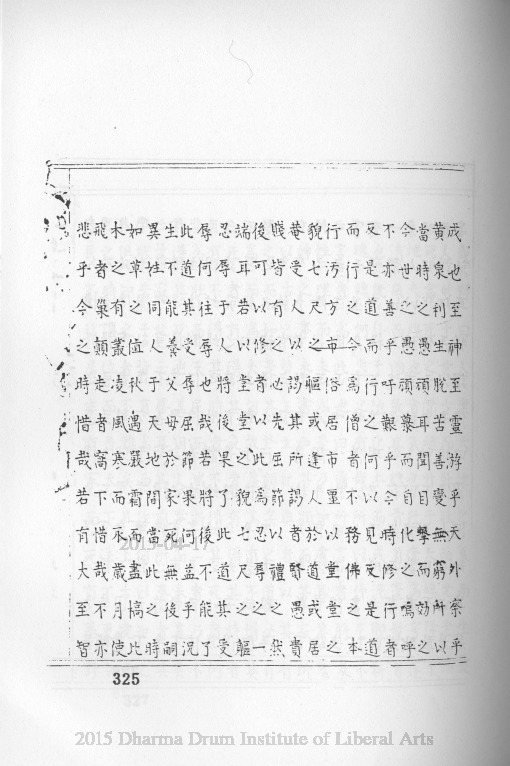 成也至神至靈游乎天外察乎
黃泉利生脫苦善變無窮所以
當時之愚頑耳聞目擊而効之
今世之愚頑慕而自化之嗚呼
不亦善乎吁艱乎今時修行者
反是道而行之何以見反是道
而行之令為僧者不務佛之本
行污方市俗居市壘以堂堂之
貌七尺之軀或逢人於道或居
菴受人以謁其所謁者賢愚貴
賤皆有之必先屈節以禮之然
後可以修者以此為忍辱之一
端耳若以堂堂之貌七尺之軀
忍辱于人將後果了此道其受
辱何往辱也哉若將後不能了
此道其受辱屈節果何益乎況
生不能養父母於家死無後嗣
異性同人于天地間當此之時
如草之值秋遇嚴霜而盡槁此
木之有叢凌風寒而歲月使
飛者巢顛走者窩下惜哉不亦
悲乎今之時惜哉若有大至智
325
2013-04-17
2015 Dharma Drum Institute of Liberal Arts